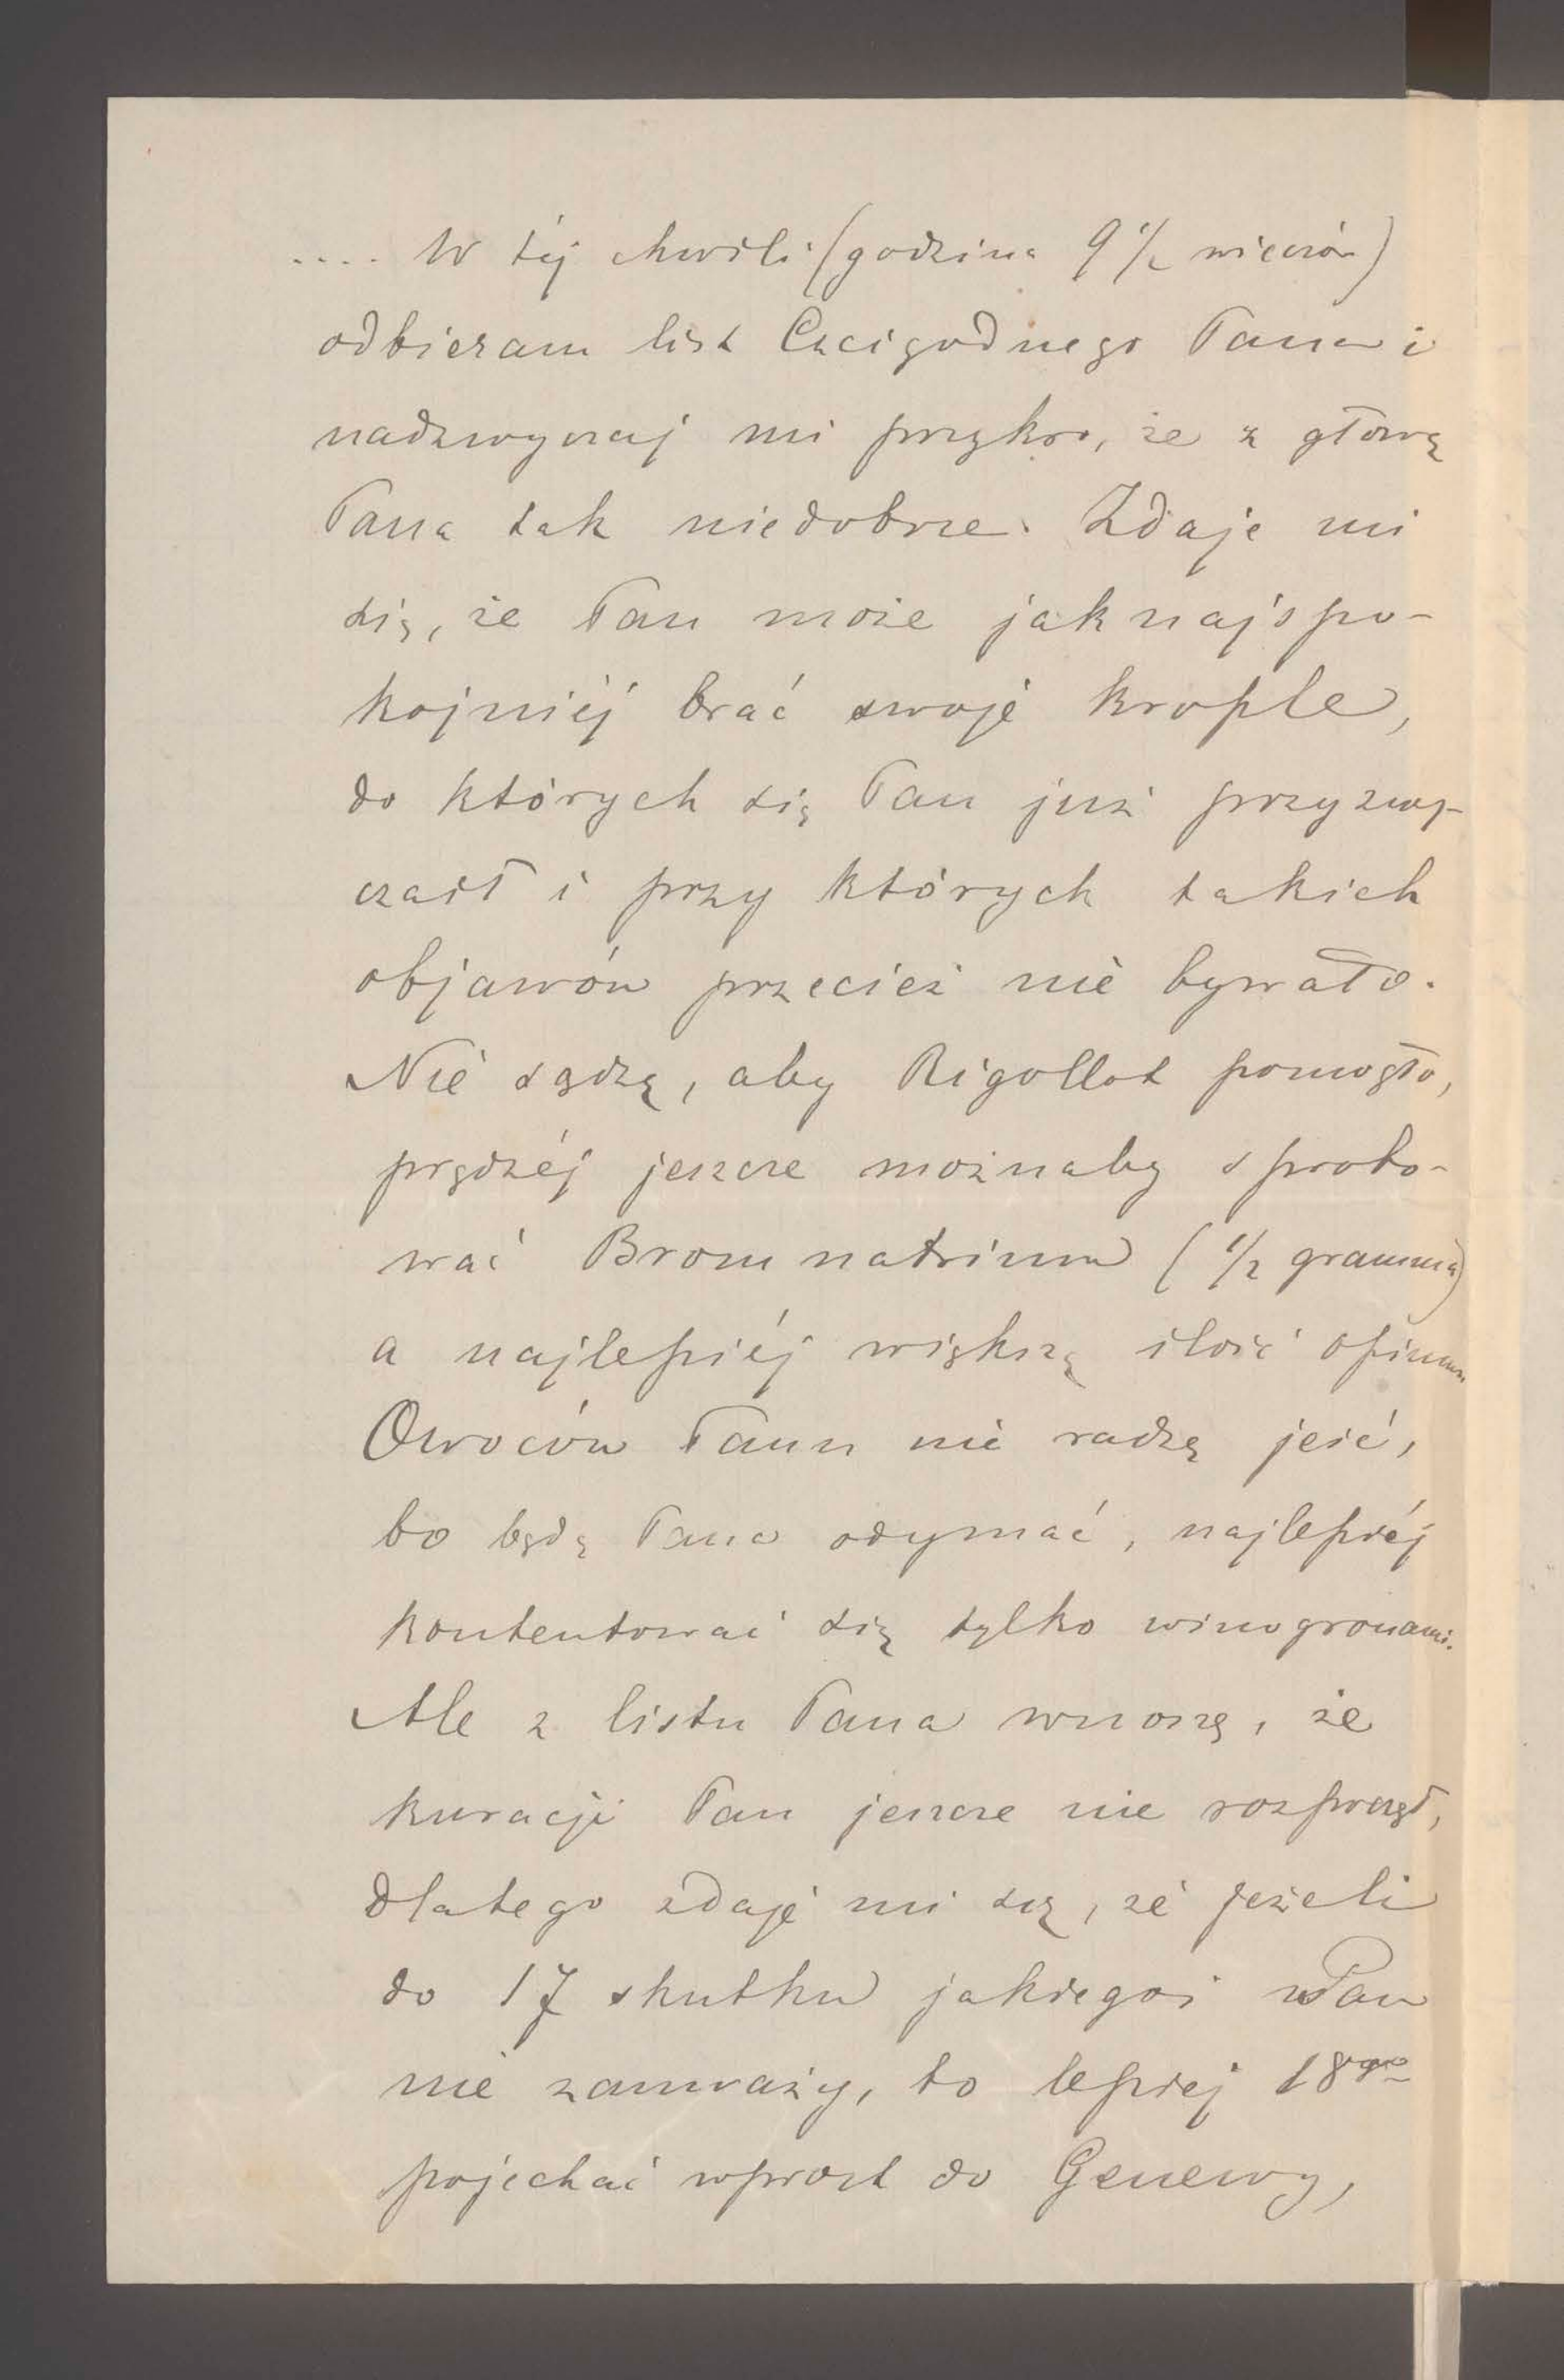 .... W téj chwili (godzina 9 1/2 wieczór)
odbieram list Czcigodnego Pana i
nadzwyczaj mi przykro, że z głową
Pana tak niedobrze. Zdaje mi
się, że Pan może jak najspo-
kojniéj brać swoje krople,
do których się Pan już przyzwy-
czaił i przy których takich
objawów przecież nie bywało.
Nie sądzę, aby Rigollot pomogło,
prędzéj jeszcze możnaby sprobo-
wać Brom natrium (1/2 gramma)
a najlepiéj większą ilość opium
Owoców Panu nie radzę jeść,
bo będą Pana odymać, najlepiéj
kontentować się tylko winogronami.
Ale z listu Pana wnoszę, że
kuracji Pan jeszcze nie rozpoczął,
dlatego zdaje mi się, że jeżeli
do 17 skutku jakiegoś Pan
nie zauważy, to lepiej 18go
pojechać wprost do Genewy,